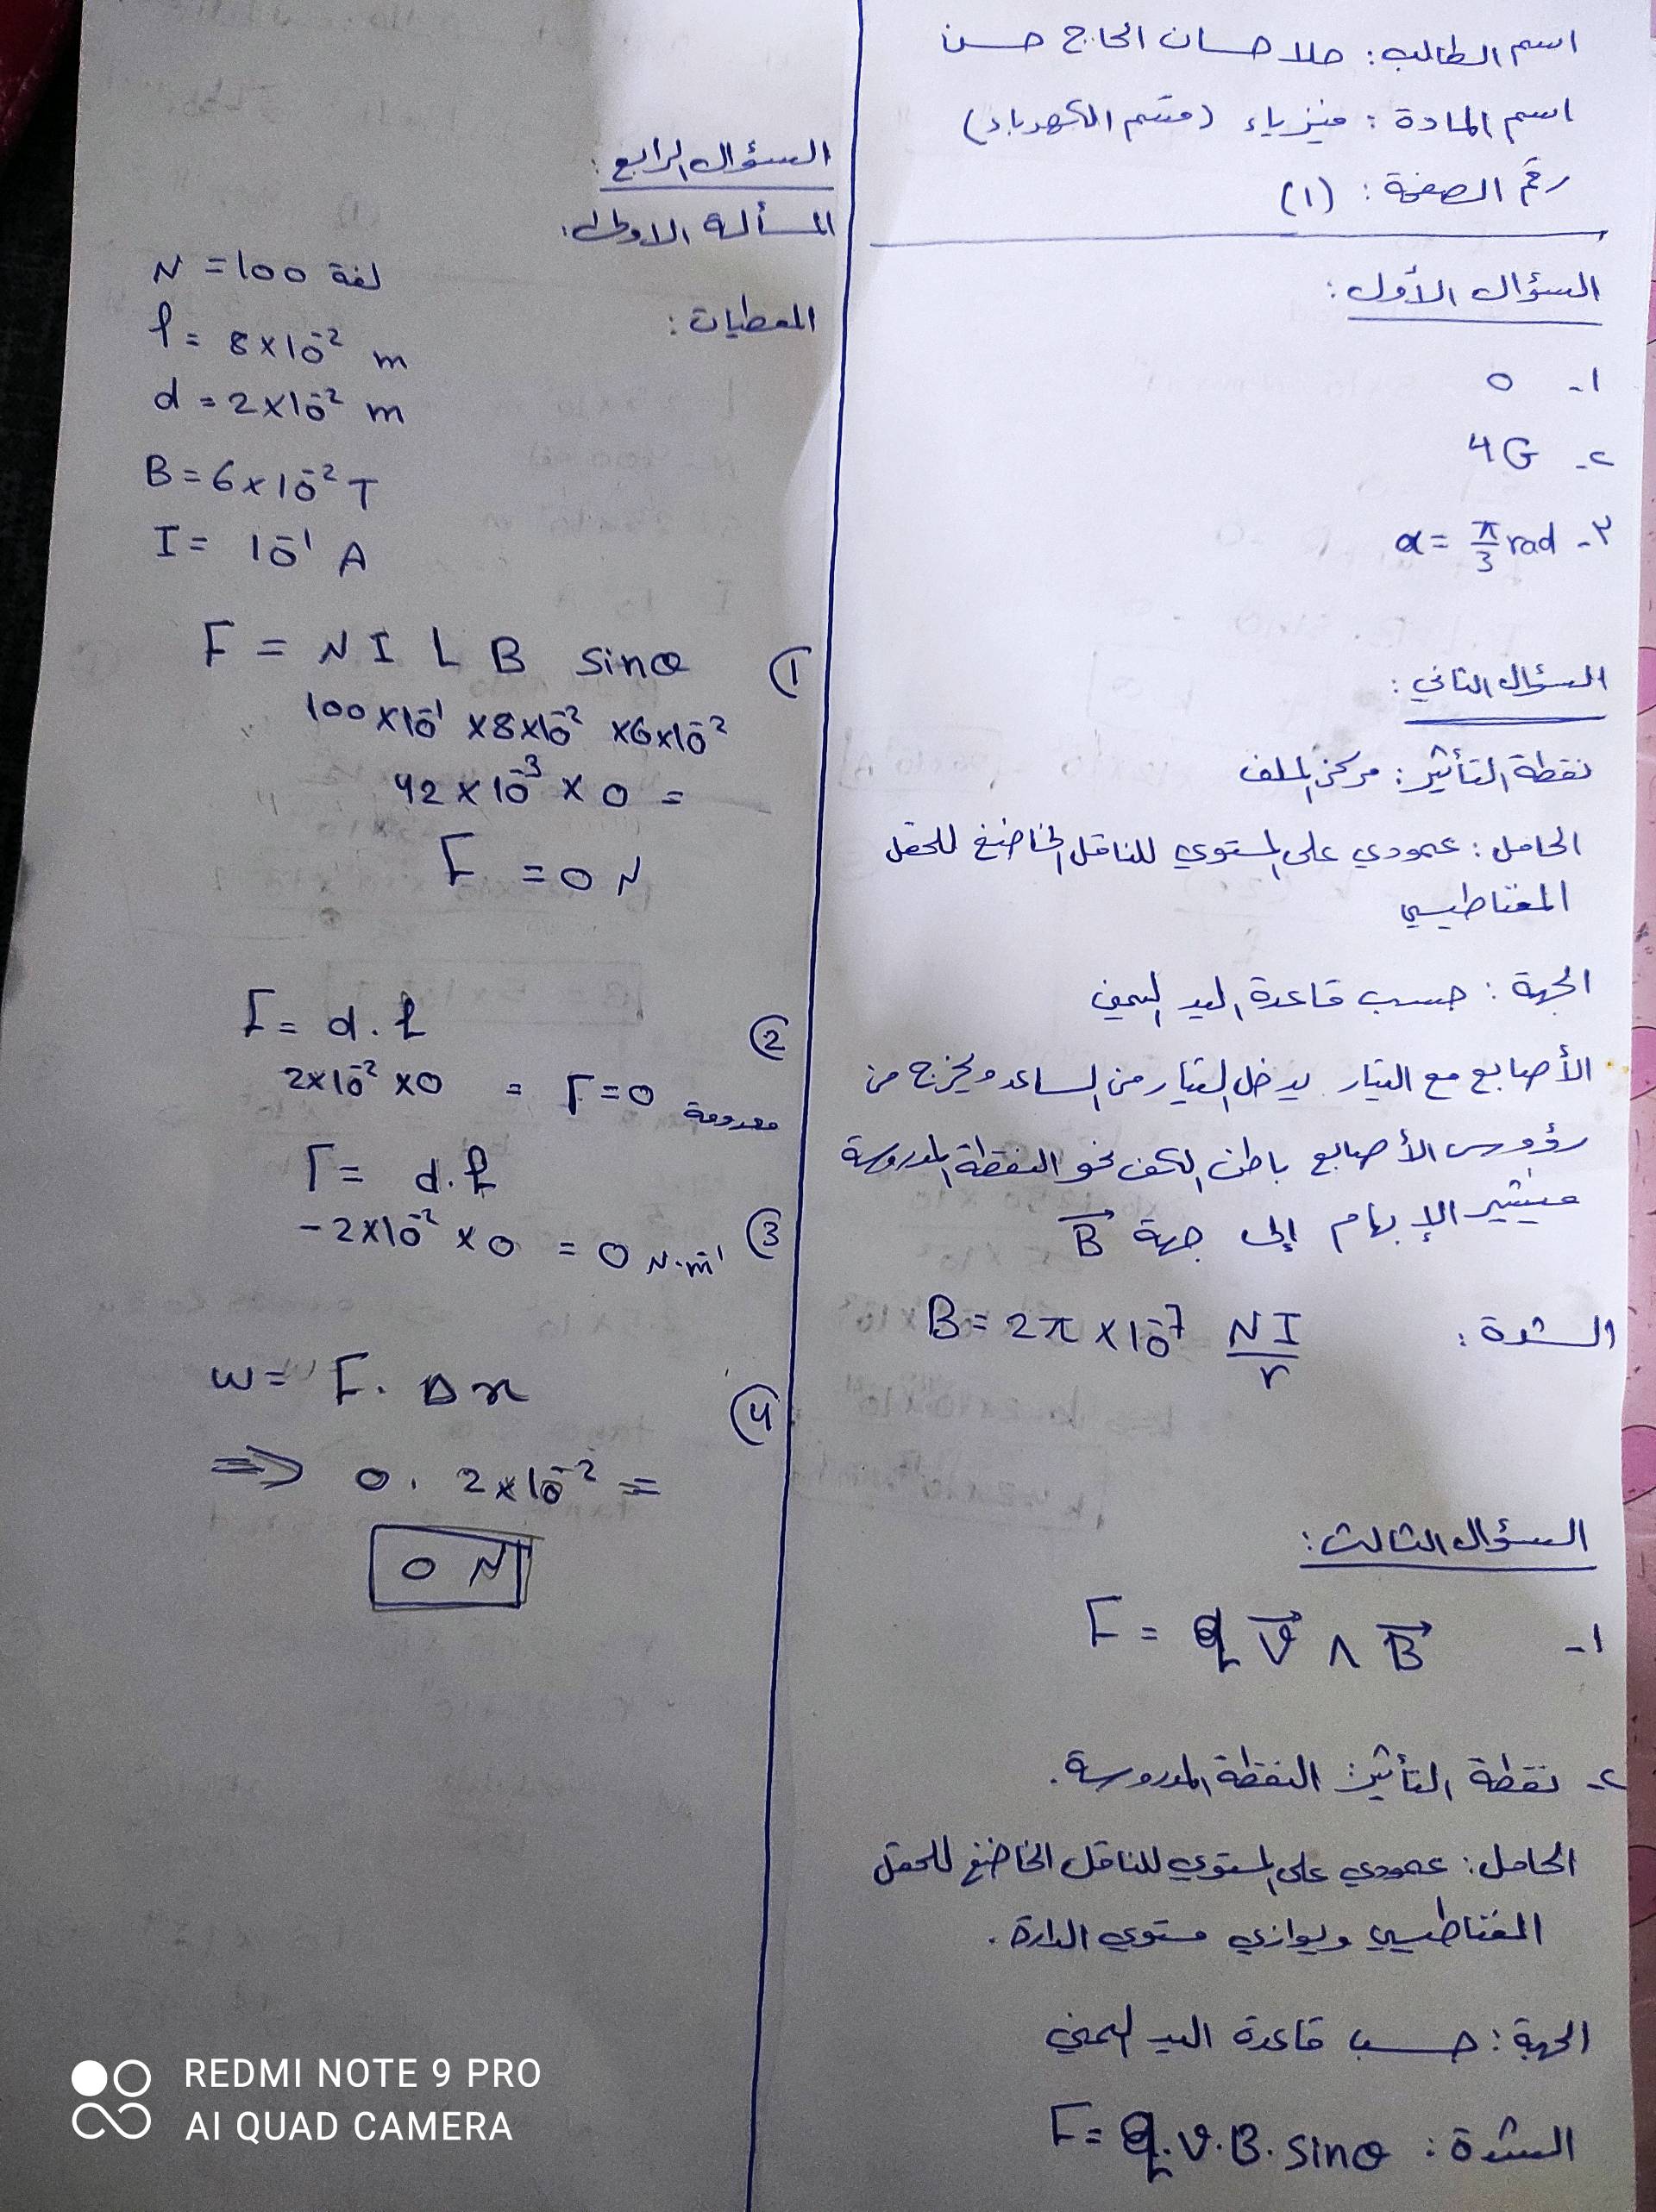 اسم الطالب: حلا حسان الحاج حسن
اسم المادة: فيزياء (قسم الكهرباء)
رقم الصفحة: (١)
السؤال الأول:
١- ٥
٢- 4G
٣- α = π/3 rad
السؤال الثاني:
نقطة التأثير: مركز الملف
الحامل: عمودي على المستوي للناقل الخاضع للحقل
المغناطيسي
الجهة: حسب قاعدة اليد اليمنى
الأصابع مع التيار يدخل التيار من الساعد ويخرج من
رؤوس الأصابع باطن الكف نحو النقطة المدروسة
فيشير الإبهام إلى جهة B⃗
الشدة: B = 2π × 10⁻⁷ NI/r
السؤال الثالث:
١- F = q v⃗ ∧ B⃗
٢- نقطة التأثير: النقطة المدروسة.
الحامل: عمودي على المستوي للناقل الخاضع للحقل
المغناطيسي ويوازي مستوي الدارة.
الجهة: حسب قاعدة اليد اليمنى
الشدة: F = q.v.B. sinθ
السؤال الرابع:
المسألة الاولى:
المعطيات:
N = 100 لفة
ℓ = 8×10⁻² m
d = 2×10⁻² m
B = 6×10⁻² T
I = 10⁻¹ A
① F = N I L B sinθ
100×10⁻¹ ×8×10⁻² ×6×10⁻²
42 × 10⁻³ × 0 =
F = 0 N
② Γ = d.f
2×10⁻² ×0 = Γ=0 معدومة
③ Γ = d.f
-2×10⁻² × 0 = 0 N.m⁻¹
④ W = F. Δx
⇒ 0. 2×10⁻² =
0 N
REDMI NOTE 9 PRO
AI QUAD CAMERA